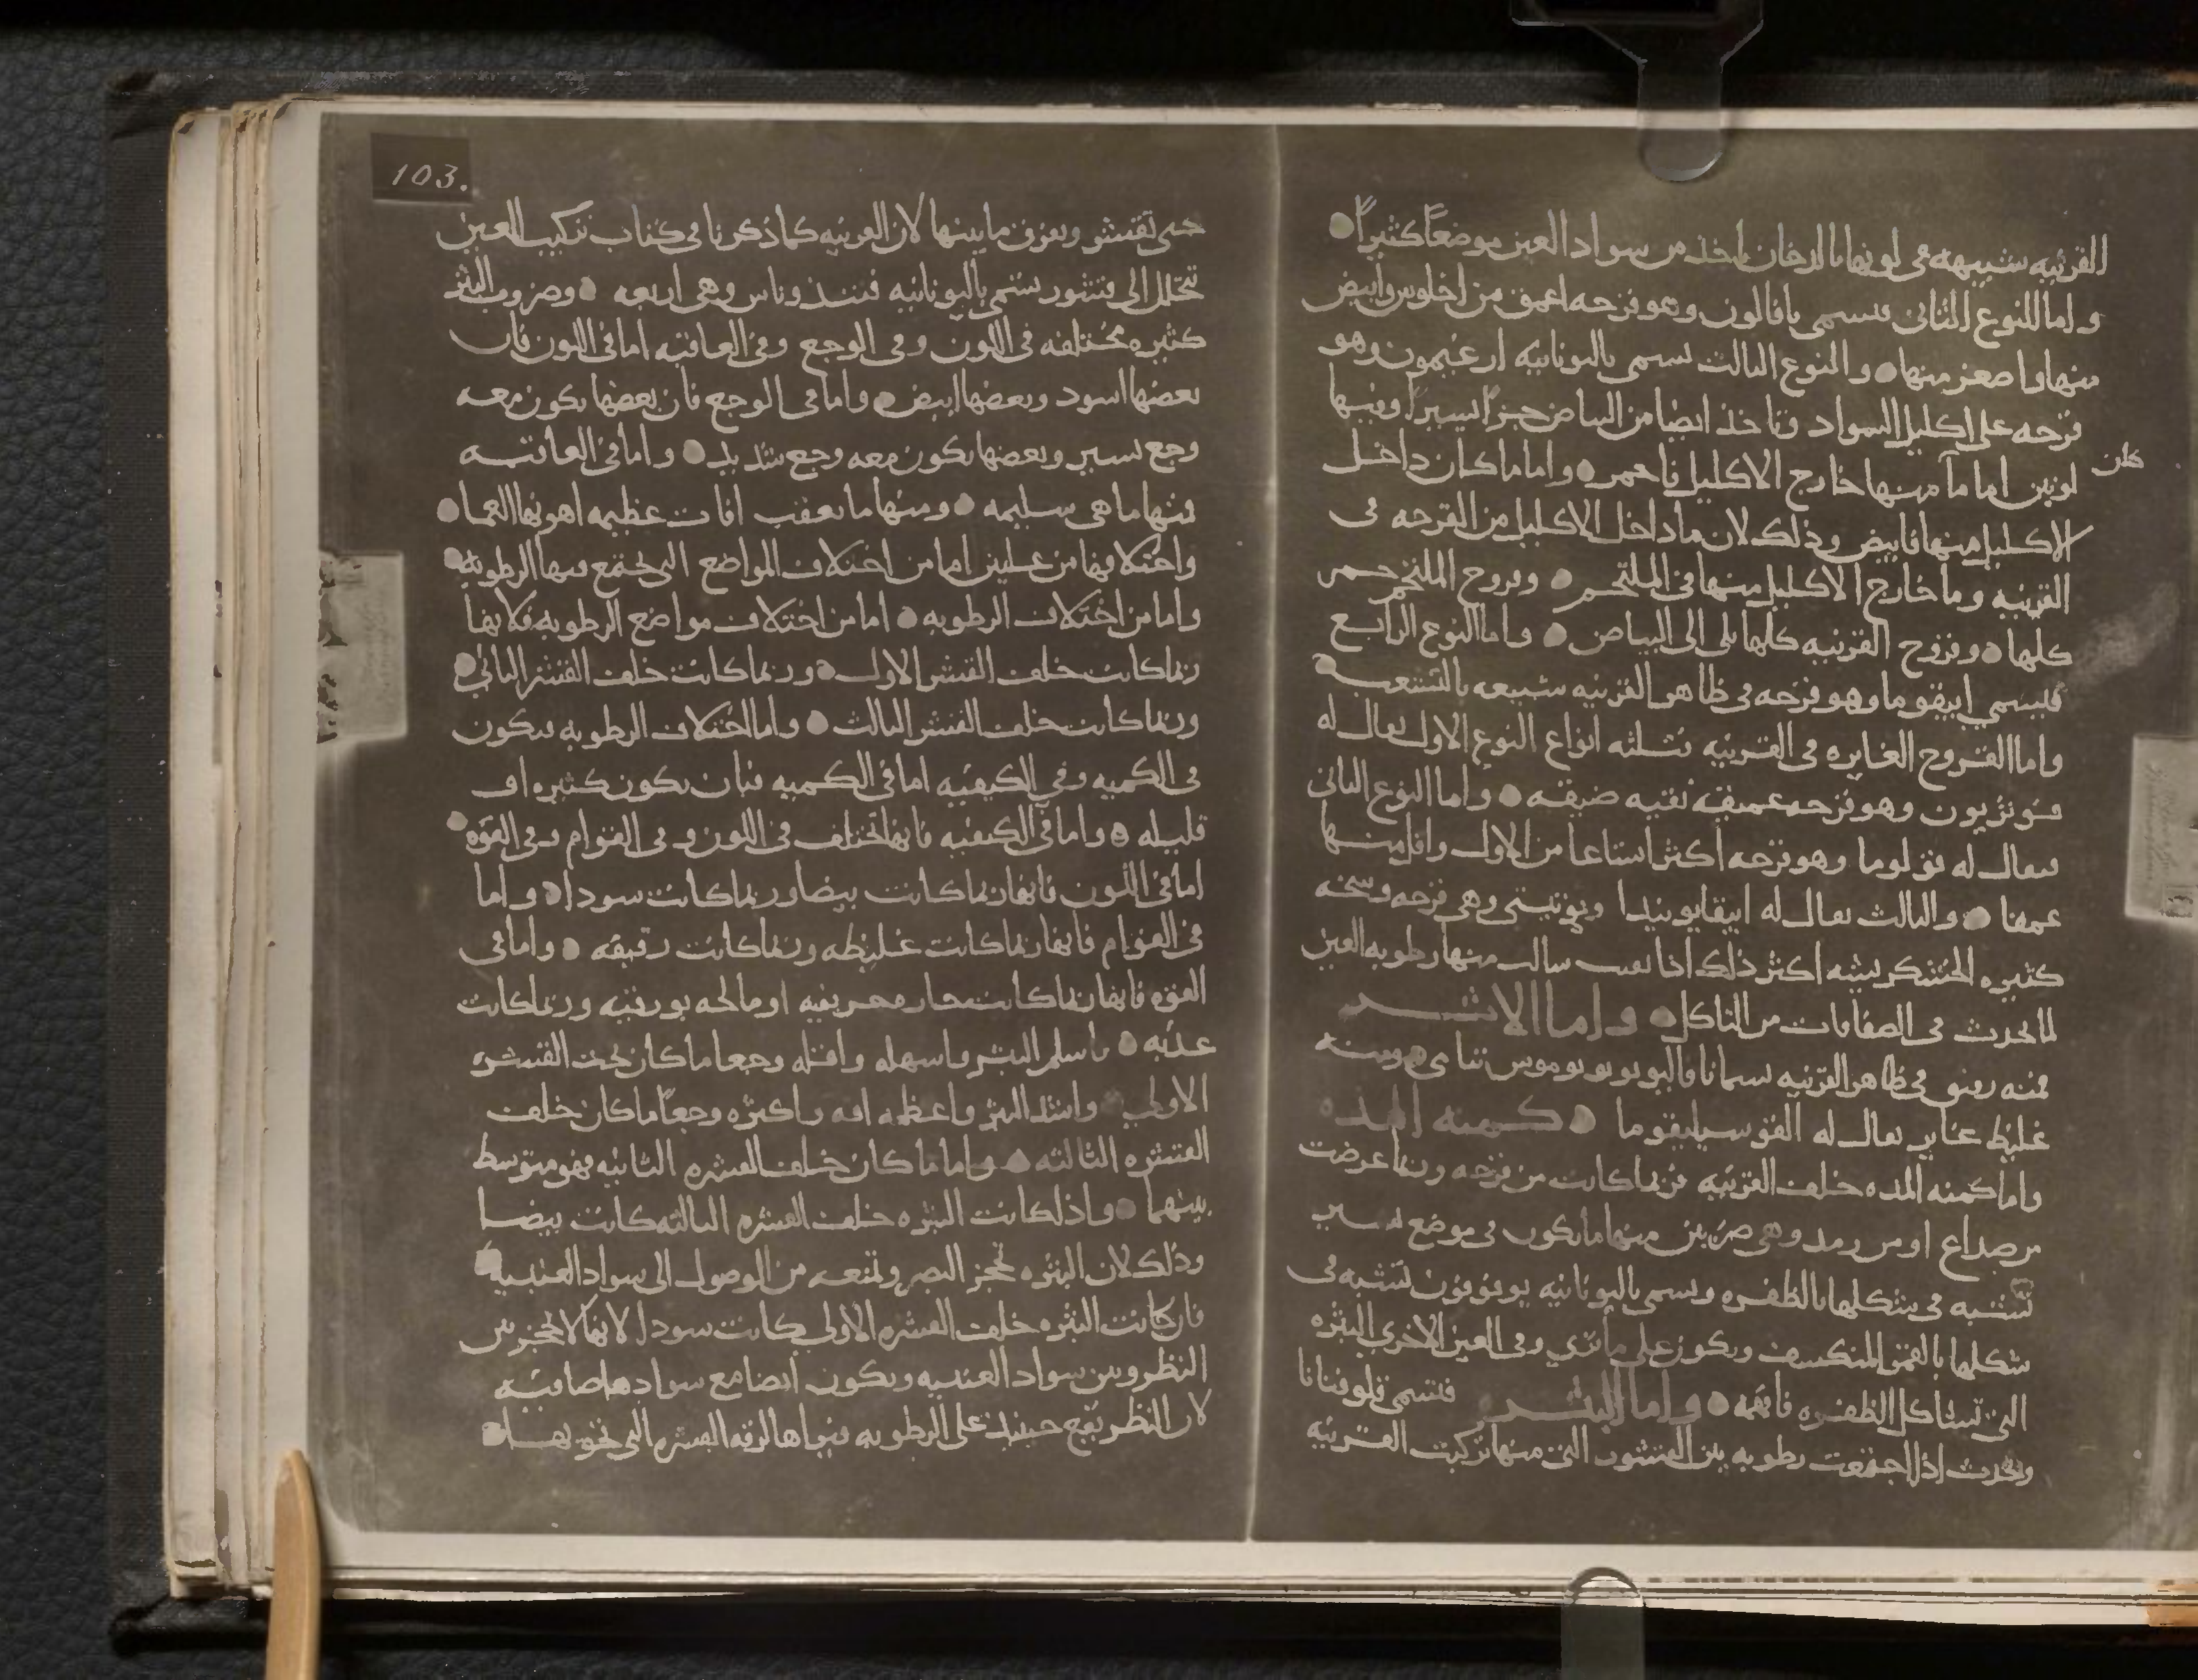 القرنيه شبيهه في لونها بالدخان ياخذ من سواد العين موضعاً كثيراً
واما النوع الثاني فيسمى نافالون وهو قرحه اعمق من اخلوس وابيض
منها واصغر منها والنوع الثالث يسمى باليونانيه ارغيمون وهو
قرحه على اكليل السواد وتاخذ ايضا من البياض جزاً يسيراً وفيها
لونين اما ما كان منها خارج الاكليل فاحمر واما ما كان داخل
الاكليل منها فابيض وذلك لان ما داخل الاكليل من القرحه في
القرنيه وما خارج الاكليل منها في الملتحم وقروح الملتحم حمر
كلها وقروح القرنيه كلها يلي الى البياض واما النوع الرابع
فيسمى ابيقوما وهو قرحه في ظاهر القرنيه شبيهه بالتشعب
واما القروح الغايره في القرنيه فثلثه انواع النوع الاول يقال له
بوثريون وهو قرحه عميقه نقيه ضيقه واما النوع الثاني
يقال له قولوما وهو قرحه اكثر اتساعا من الاول واقل منها
عمقا والثالث يقال له ابيقايو وهي قرحه وسخه
كثيره الخشكريشه اكثر ذلك اذا سالت منها رطوبه العين
لما يحدث في الصفاقات من التاكل واما الاثر
فمنه رقيق في ظاهر القرنيه ومنه
غليظ غاير يقال له كمنه المده
واما كمنه المده خلف القرنيه فربما كانت من قرحه وربما عرضت
من صداع او من رمد وهي ضربين منها ما يكون في موضع يسير
تشبه في شكلها بالظفره ويسمى باليونانيه لتشبه في
شكلها بالقمر المنكسف ويكون على ما ترى وفي العين الاخرى البثره
التي تشاكل الظفره واما البثر فتسمى فلوقنانا
ويحدث اذا اجتمعت رطوبه بين القشور التي منها تركبت القرنيه
103.
حتى تقشر وتفرق ما بينها لان القرنيه كما ذكرنا في كتاب تركيب العين
تتحلل الى قشور تسمى باليونانيه وهي اربعه وضروب البثر
كثيره مختلفه في اللون وفي الوجع وفي العاقبه اما في اللون فان
بعضها اسود وبعضها ابيض واما في الوجع فان بعضها يكون معه
وجع يسير وبعضها يكون معه وجع شديد واما في العاقبه
فمنها ما هي سليمه ومنها ما يعقب افات عظيمه اهونها العما
واختلافها من علتين اما من اختلاف المواضع التي تجتمع فيها الرطوبه
واما من اختلاف الرطوبه اما من اختلاف مواضع الرطوبه فلانها
ربما كانت خلف القشر الاول وربما كانت خلف القشر الثاني
وربما كانت خلف القشر الثالث واما اختلاف الرطوبه فيكون
في الكميه وفي الكيفيه اما في الكميه فبان يكون كثيره او
قليله واما في الكيفيه فانها تختلف في اللون وفي القوام وفي القوه
اما في اللون فانها ربما كانت بيضا وربما كانت سودا واما
في القوام فانها ربما كانت غليظه وربما كانت رقيقه واما في
القوه فانها ربما كانت حاره حريفيه او مالحه بورقيه وربما كانت
عذبه فاسلم البثر واسهله واقله وجعا ما كان تحت القشره
الاولى واشد البثر واعظمه افه واكثره وجعاً ما كان خلف
القشره الثالثه واما ما كان خلف القشره الثانيه فهو متوسط
بينهما واذا كانت البثره خلف القشره الثالثه كانت بيضا
وذلك لان البثره تحجز البصر وتمنعه من الوصول الى سواد العنبيه
فان كانت البثره خلف القشره الاولى كانت سودا لانها لا تحجز بين
النظر وبين سواد العنبيه ويكون ايضا مع سوادها صافيه
لان النظر يقع حينئذ على الرطوبه فيراها لرقه القشره التي تحويها